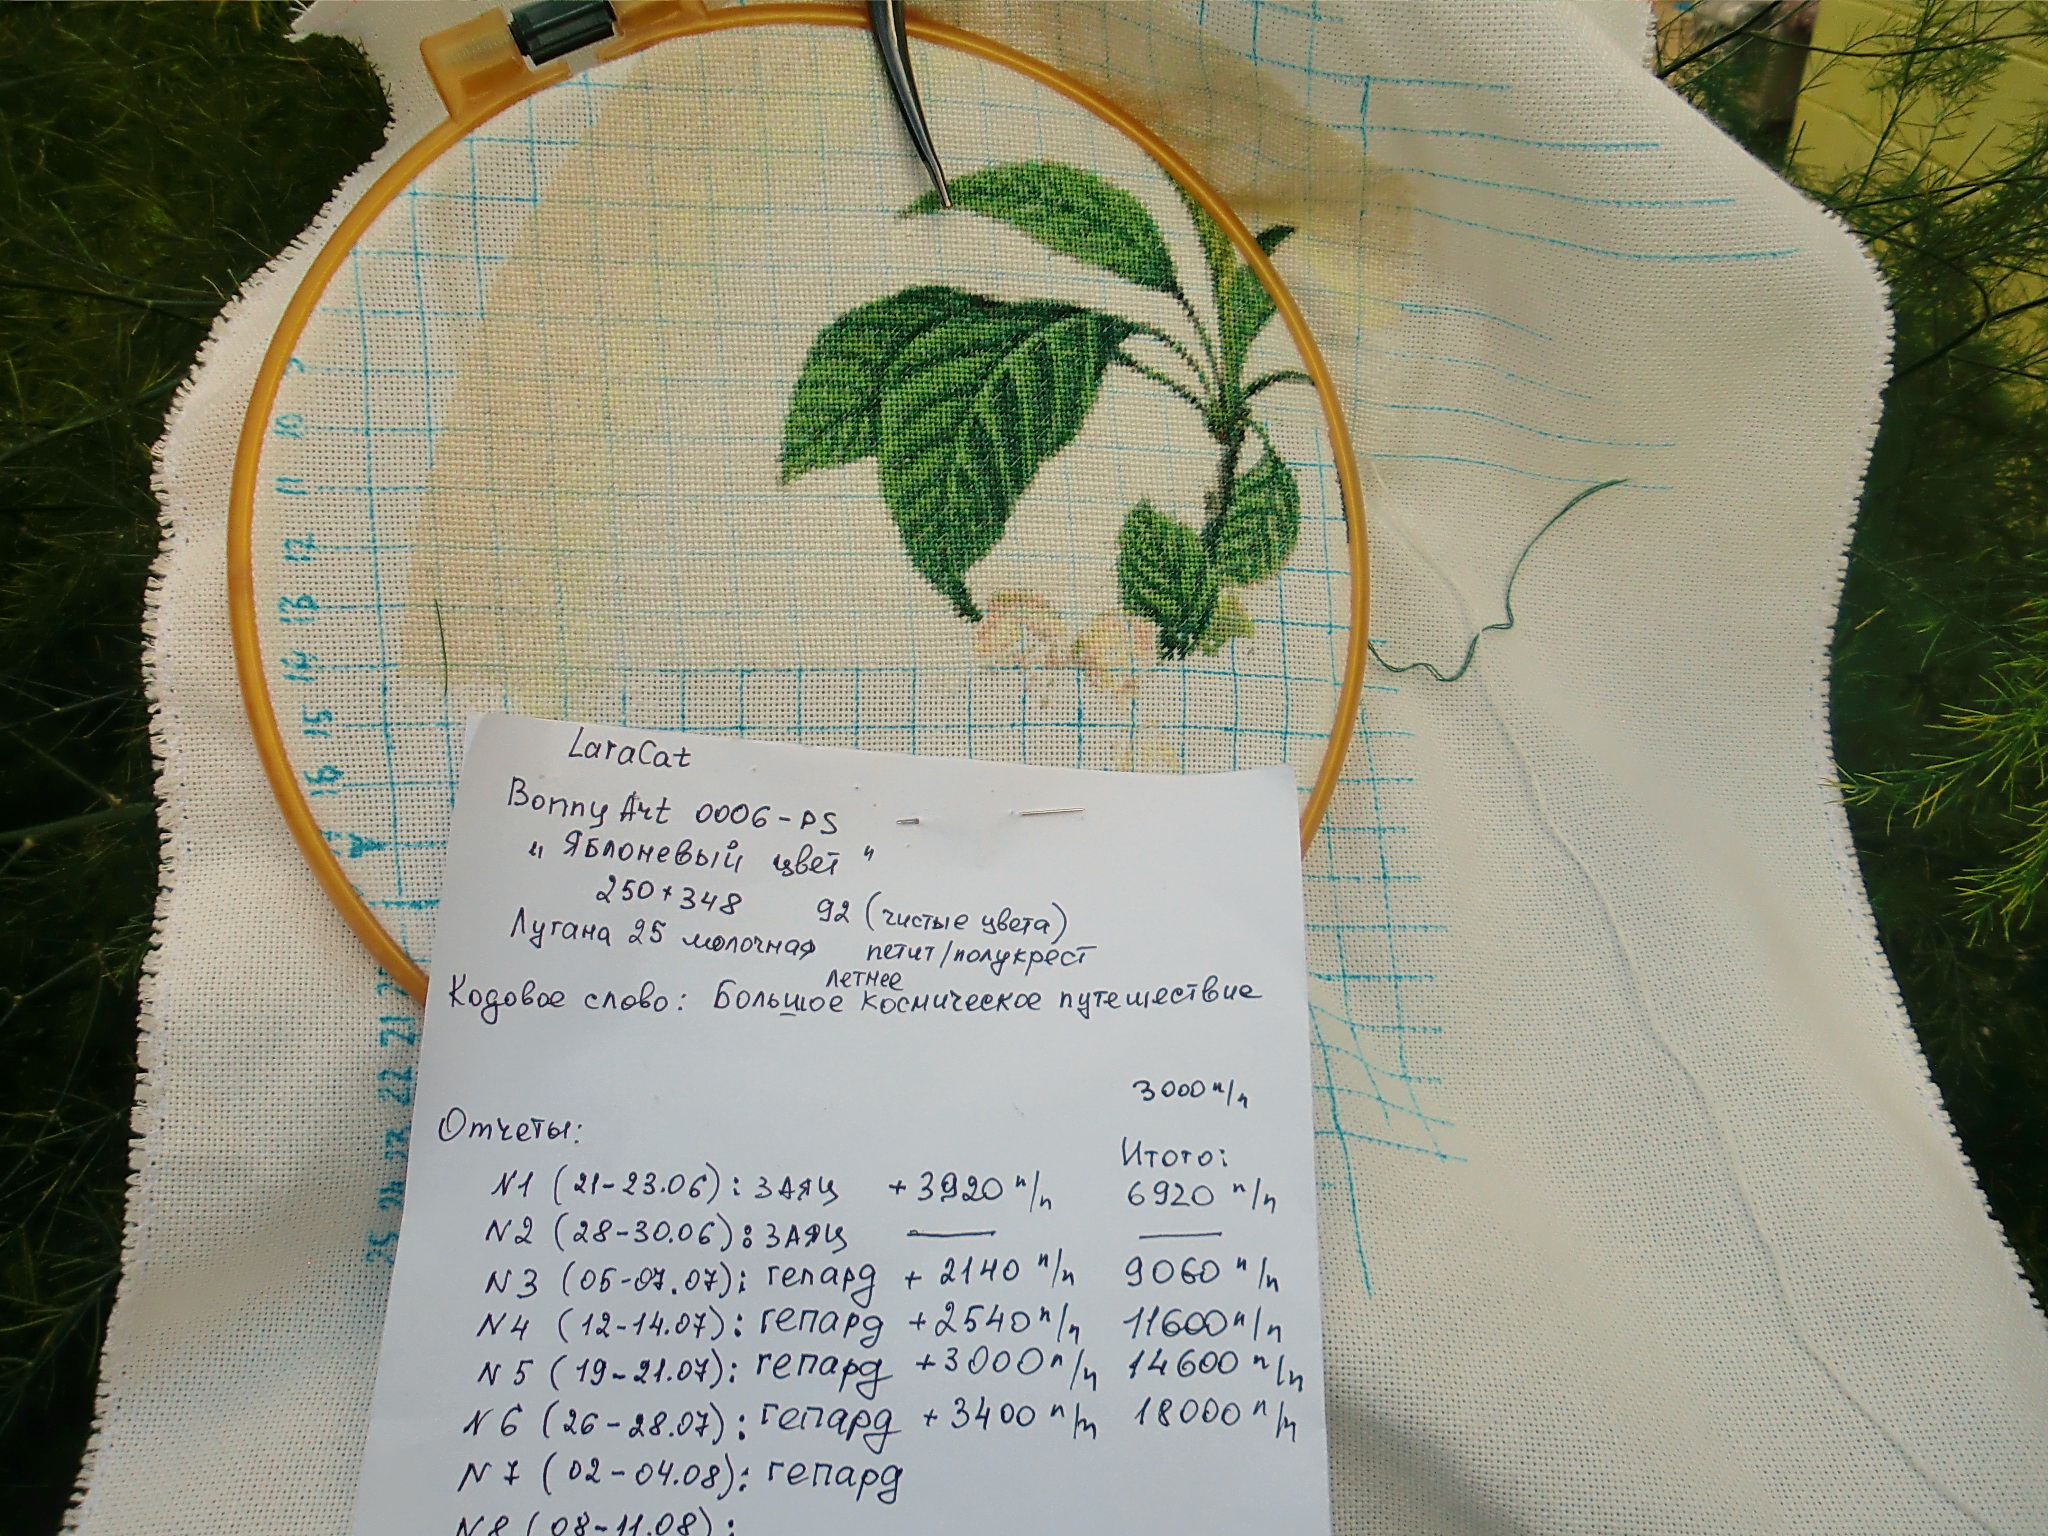 9
10
11
12
13
14
15
16
LaraCat
Bonny Art 0006-PS
„Яблоневый цвет"
250*348 92 (чистые цвета)
Лугана 25 молочная петит/полукрест
летнее
Кодовое слово: Большое космическое путешествие
3000 п/п
Отчеты:
Итого:
N1 (21-23.06): ЗАЯЦ +3920 п/п 6920 п/п
N2 (28-30.06): ЗАЯЦ — —
N3 (05-07.07): гепард +2140 п/п 9060 п/п
N4 (12-14.07): гепард +2540 п/п 11600 п/п
N5 (19-21.07): гепард +3000 п/п 14600 п/п
N6 (26-28.07): гепард +3400 п/п 18000 п/п
N7 (02-04.08): гепард
N8 (08-11.08):
21
22
23
24
25